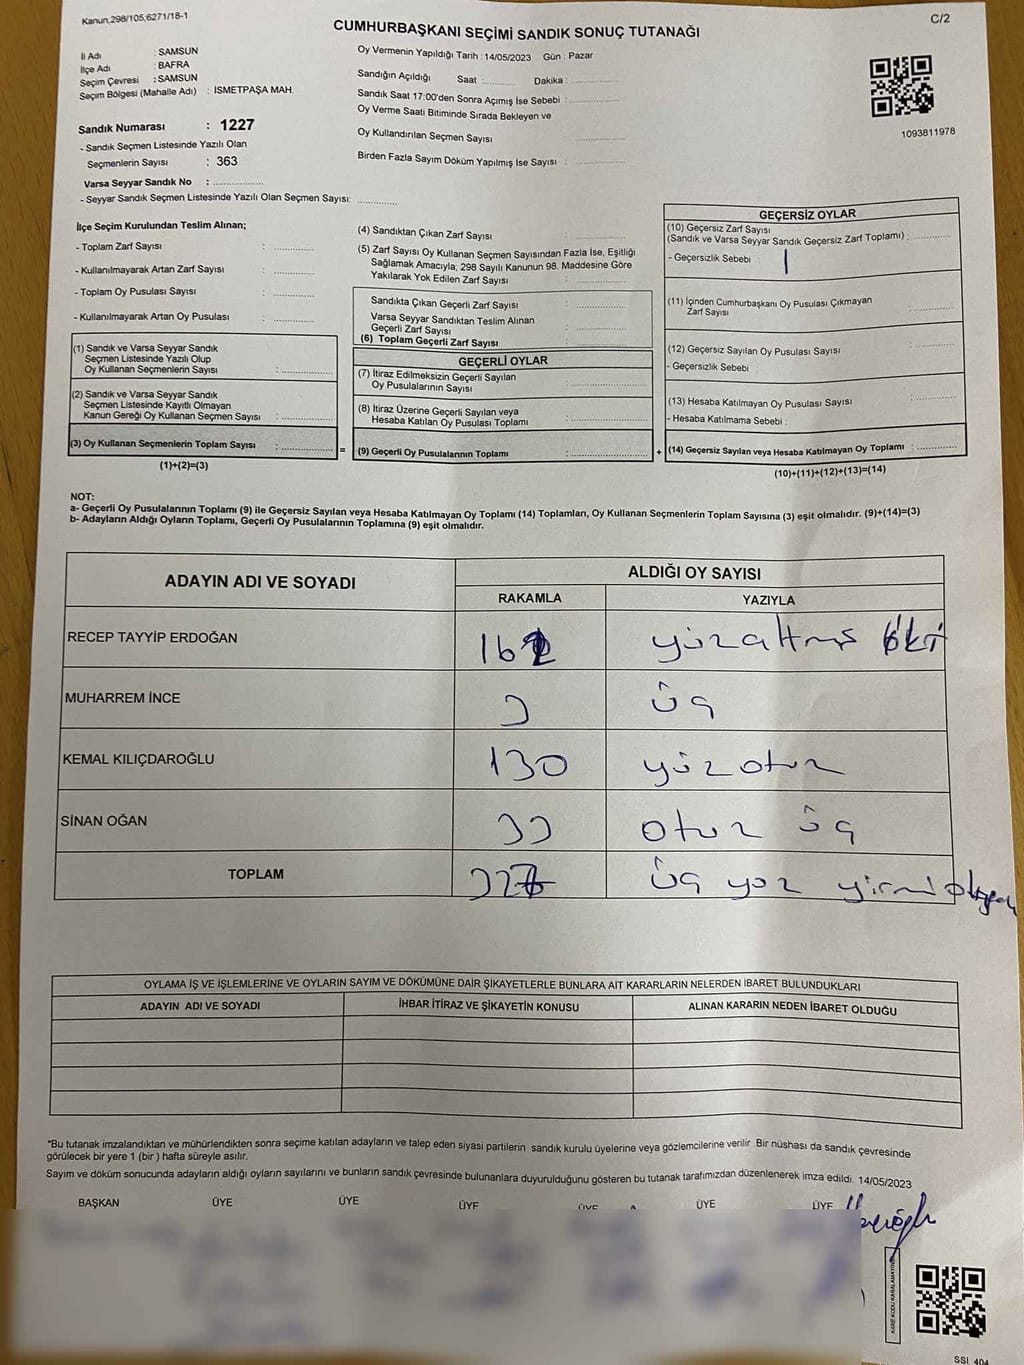 Kanun;298/105,6271/18-1
C/2
CUMHURBAŞKANI SEÇİMİ SANDIK SONUÇ TUTANAĞI
İl Adı : SAMSUN
İlçe Adı : BAFRA
Seçim Çevresi : SAMSUN
Seçim Bölgesi (Mahalle Adı) : İSMETPAŞA MAH.
Sandık Numarası : 1227
- Sandık Seçmen Listesinde Yazılı Olan
Seçmenlerin Sayısı : 363
Varsa Seyyar Sandık No : ..................
- Seyyar Sandık Seçmen Listesinde Yazılı Olan Seçmen Sayısı: ..............
Oy Vermenin Yapıldığı Tarih : 14/05/2023 Gün : Pazar
Sandığın Açıldığı Saat :........... Dakika : ................
Sandık Saat 17:00'den Sonra Açımış İse Sebebi : ................
Oy Verme Saati Bitiminde Sırada Bekleyen ve
Oy Kullandırılan Seçmen Sayısı ................
Birden Fazla Sayım Döküm Yapılmış İse Sayısı : ................
1093811978
İlçe Seçim Kurulundan Teslim Alınan;
- Toplam Zarf Sayısı : ..............
- Kullanılmayarak Artan Zarf Sayısı : ..............
- Toplam Oy Pusulası Sayısı : ..............
- Kullanılmayarak Artan Oy Pusulası : ..............
(1) Sandık ve Varsa Seyyar Sandık
Seçmen Listesinde Yazılı Olup
Oy Kullanan Seçmenlerin Sayısı : ..............
(2) Sandık ve Varsa Seyyar Sandık
Seçmen Listesinde Kayıtlı Olmayan
Kanun Gereği Oy Kullanan Seçmen Sayısı : ..............
(3) Oy Kullanan Seçmenlerin Toplam Sayısı : ..............
(1)+(2)=(3)
=
(4) Sandıktan Çıkan Zarf Sayısı : ..............
(5) Zarf Sayısı Oy Kullanan Seçmen Sayısından Fazla İse, Eşitliği
Sağlamak Amacıyla; 298 Sayılı Kanunun 98. Maddesine Göre
Yakılarak Yok Edilen Zarf Sayısı : ..............
Sandıkta Çıkan Geçerli Zarf Sayısı : ..............
Varsa Seyyar Sandıktan Teslim Alınan
Geçerli Zarf Sayısı : ..............
(6) Toplam Geçerli Zarf Sayısı : ..............
GEÇERLİ OYLAR
(7) İtiraz Edilmeksizin Geçerli Sayılan
Oy Pusulalarının Sayısı : ..............
(8) İtiraz Üzerine Geçerli Sayılan veya
Hesaba Katılan Oy Pusulası Toplamı : ..............
(9) Geçerli Oy Pusulalarının Toplamı : ..............
+
GEÇERSİZ OYLAR
(10) Geçersiz Zarf Sayısı
(Sandık ve Varsa Seyyar Sandık Geçersiz Zarf Toplamı) : ..............
- Geçersizlik Sebebi : 1
(11) İçinden Cumhurbaşkanı Oy Pusulası Çıkmayan
Zarf Sayısı : ..............
(12) Geçersiz Sayılan Oy Pusulası Sayısı : ..............
- Geçersizlik Sebebi :
(13) Hesaba Katılmayan Oy Pusulası Sayısı : ..............
- Hesaba Katılmama Sebebi :
(14) Geçersiz Sayılan veya Hesaba Katılmayan Oy Toplamı : ..............
(10)+(11)+(12)+(13)=(14)
NOT:
a- Geçerli Oy Pusulalarının Toplamı (9) ile Geçersiz Sayılan veya Hesaba Katılmayan Oy Toplamı (14) Toplamları, Oy Kullanan Seçmenlerin Toplam Sayısına (3) eşit olmalıdır. (9)+(14)=(3)
b- Adayların Aldığı Oyların Toplamı, Geçerli Oy Pusulalarının Toplamına (9) eşit olmalıdır.
ADAYIN ADI VE SOYADI
ALDIĞI OY SAYISI
RAKAMLA YAZIYLA
RECEP TAYYİP ERDOĞAN 162 yüzaltmış iki
MUHARREM İNCE 3 üç
KEMAL KILIÇDAROĞLU 130 yüz otuz
SİNAN OĞAN 33 otuz üç
TOPLAM üç yüz yirmi
OYLAMA İŞ VE İŞLEMLERİNE VE OYLARIN SAYIM VE DÖKÜMÜNE DAİR ŞİKAYETLERLE BUNLARA AİT KARARLARIN NELERDEN İBARET BULUNDUKLARI
ADAYIN ADI VE SOYADI İHBAR İTİRAZ VE ŞİKAYETİN KONUSU ALINAN KARARIN NEDEN İBARET OLDUĞU
*Bu tutanak imzalandıktan ve mühürlendikten sonra seçime katılan adayların ve talep eden siyasi partilerin sandık kurulu üyelerine veya gözlemcilerine verilir .Bir nüshası da sandık çevresinde
görülecek bir yere 1 (bir ) hafta süreyle asılır.
Sayım ve döküm sonucunda adayların aldığı oyların sayılarını ve bunların sandık çevresinde bulunanlara duyurulduğunu gösteren bu tutanak tarafımızdan düzenlenerek imza edildi. 14/05/2023
BAŞKAN ÜYE ÜYE ÜYE ÜYE ÜYE ÜYE
KARE KODU KARALAMAYINIZ
SSI 404